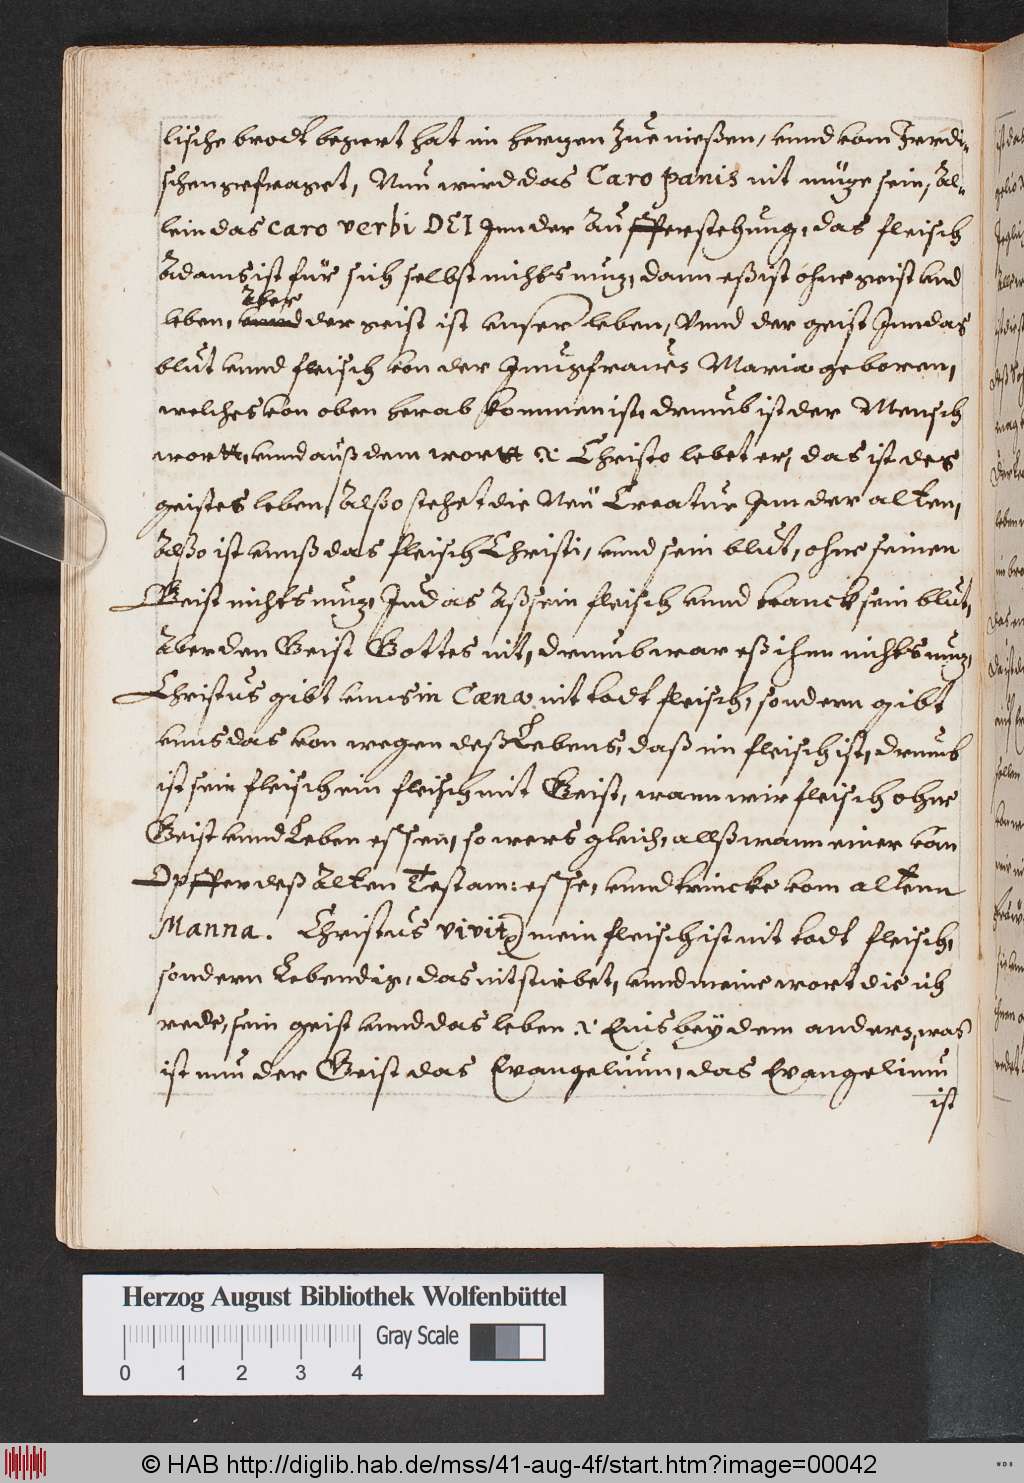 lische brodt begert hat im hertzen zue nießen, vnnd vom Irrdi-
schen gefraget, Nun wird das Caro panis nit nütze sein, Al-
lein das caro verbi DEI Jnn der Aufferstehung, das fleisch
Adams ist für sich selbst nichts nutz, dann eß ist ohne geist vnd
leben, Aber der geist ist vnser leben, Vnnd der geist Jnn das
blut vnnd fleisch von der Jungfrauen Maria geboren,
welches von oben herab kommen ist, drumb ist der Mensch
wortt, vnnd auß dem wortt Christo lebet er, das ist des
geistes leben, Alßo stehet die Neü Creatur Jnn der alten,
Alßo ist vnnß das fleisch Christi, vnnd sein blut, ohne seinen
Geist nichts nutz, Judas Aß sein fleisch vnnd tranck sein blut,
Aber den Geist Gottes nit, drumb war eß ihm nichts nutz,
Christus gibt vnns in Cœna nit todt fleisch, sondern gibt
vnns das von wegen deß Lebens, daß im fleisch ist, drumb
ist sein fleisch ein fleisch mit Geist, wann wir fleisch ohne
Geist vnnd Leben essen, so wers gleich, allß wann einer von
Opffer deß Alten Testam: esse, vnnd trincke vom altenn
Manna. Christus vivit mein fleisch ist nit todt fleisch,
sondern Lebendig, das nit stirbet, vnnd meine wort die ich
rede, sein geist vnnd das leben Eins bey dem andern, was
ist nun der Geist das Evangelium, das Evangelium
ist
Herzog August Bibliothek Wolfenbüttel
Gray Scale
0 1 2 3 4
© HAB http://diglib.hab.de/mss/41-aug-4f/start.htm?image=00042